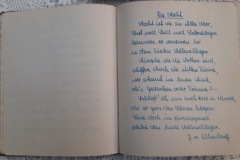 Die Nacht
Nacht ist wie ein stilles Meer,
Lust und Leid und Liebesklagen
kommen so verworren her
in dem linden Wellenschlagen.
Wünsche wie die Wolken sind,
schiffen durch die stillen Räume,
wer erkennt im lauen Wind,
ob's Gedanken oder Träume? –
Schließ' ich nun auch Herz u. Mund,
die so gern den Sternen klagen
leise doch im Herzensgrund
bleibt das linde Wellenschlagen.
J. v. Eichendorff